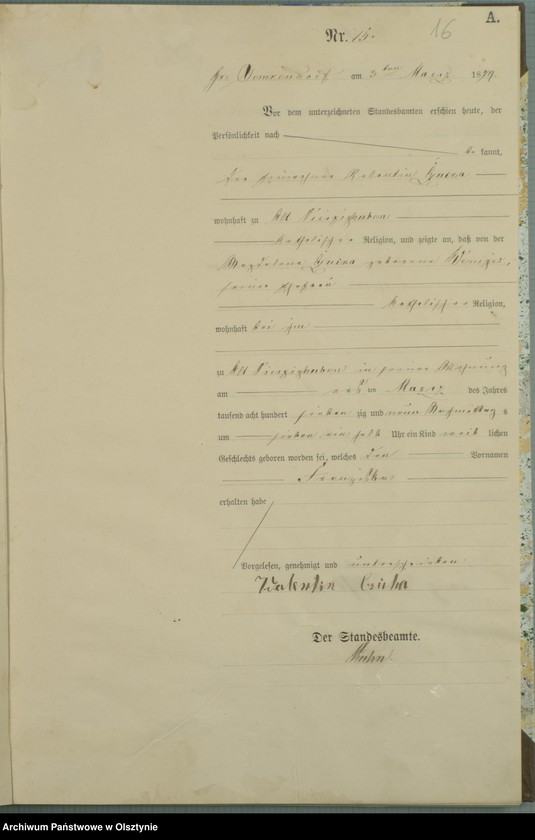 16
A.
Nr. 15.
am 3ten Maerz 1879.
Vor dem unterzeichneten Standesbeamten erschien heute, der
Persönlichkeit nach
be kannt,
Valentin
wohnhaft zu Alt Vierzighuben
katholischer Religion, und zeigte an, daß von der
Magdalena geborene
seiner Ehefrau
katholischer Religion,
wohnhaft bei ihm
zu Alt Vierzighuben in seiner Wohnung
am ten Maerz des Jahres
tausend acht hundert sieben zig und neun Nachmittag s
um sieben ein halb Uhr ein Kind weib lichen
Geschlechts geboren worden sei, welches den Vornamen
Franziska
erhalten habe
Vorgelesen, genehmigt und unterschrieben
Valentin
Der Standesbeamte.
Archiwum Państwowe w Olsztynie